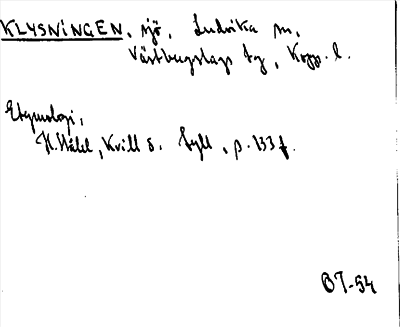 KLYSNINGEN, sjö, Ludvika sn,
Västerbergslags tg, Kopp. l.
Etymologi,
H. Ståhl, Kvill o. Tyll, p. 133 f.
BT-54